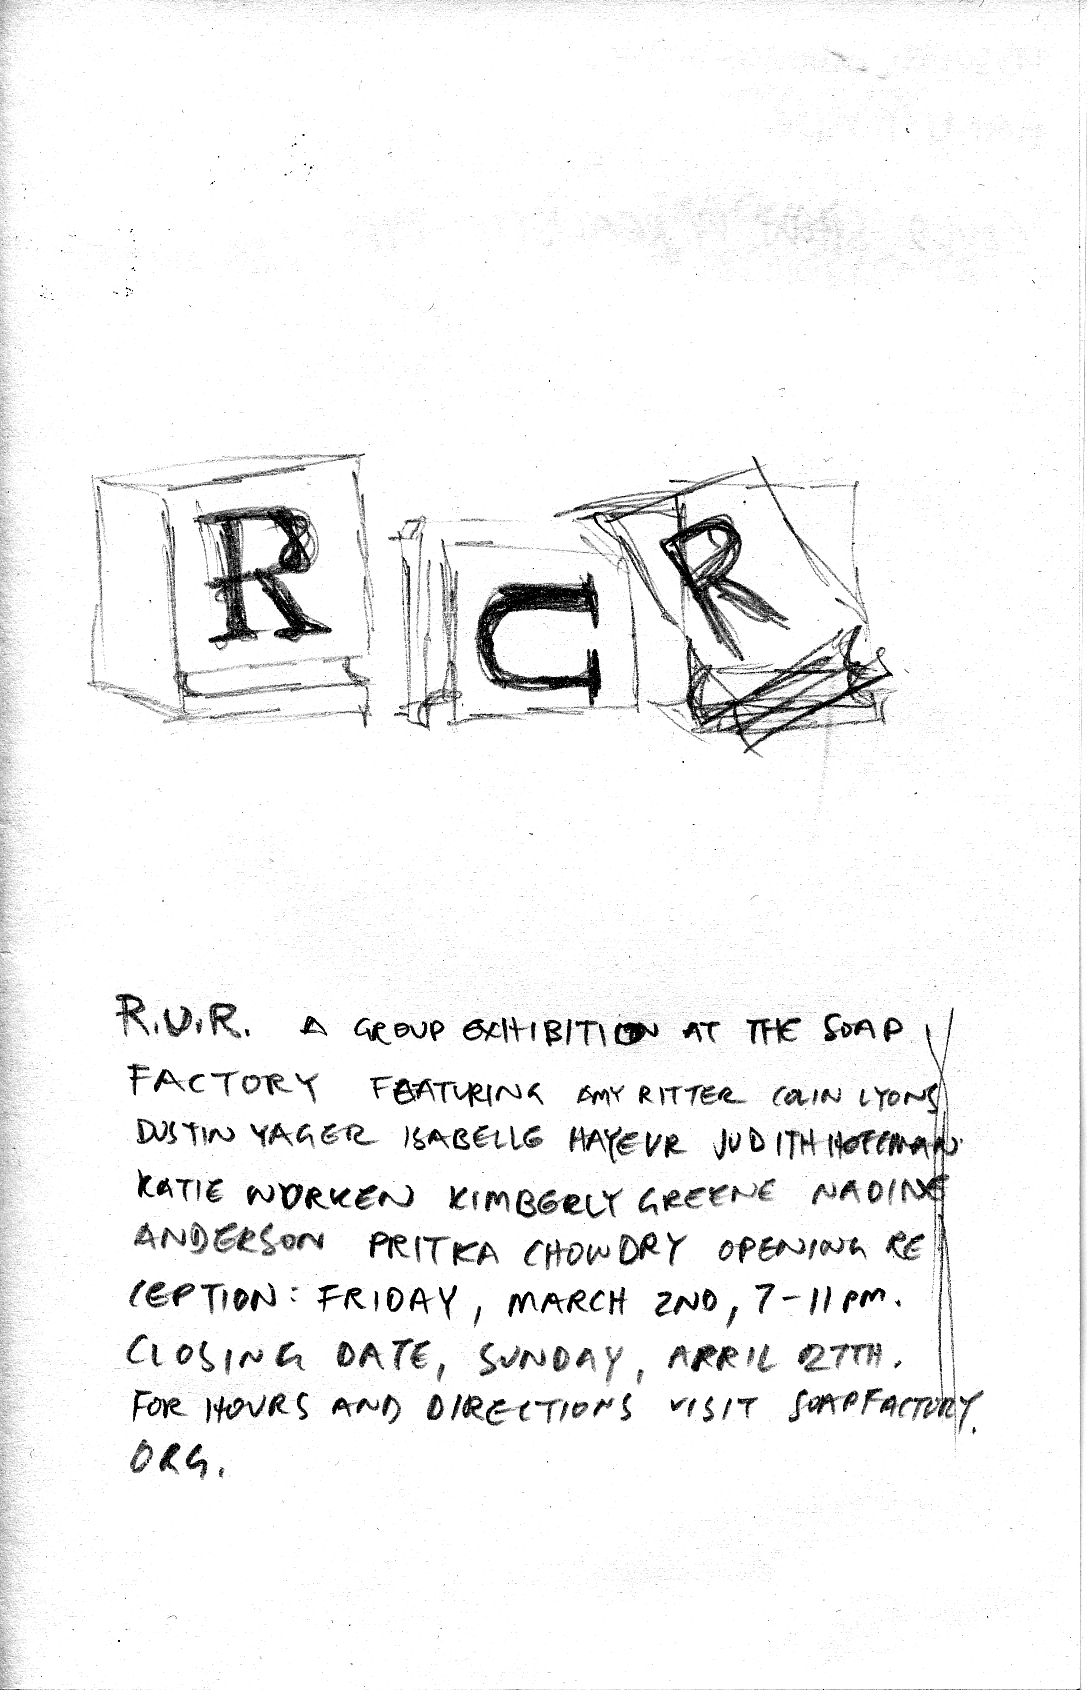 R U R
R.U.R. A GROUP EXHIBITION AT THE SOAP
FACTORY FEATURING AMY RITTER COLIN LYONS
DUSTIN YAGER ISABELLE HAYEUR JUDITH HOFFMAN
KATIE WORKEN KIMBERLY GREENE NADINE
ANDERSON PRITKA CHOWDRY OPENING RE
CEPTION: FRIDAY, MARCH 2ND, 7-11PM.
CLOSING DATE, SUNDAY, APRIL 27TH.
FOR HOURS AND DIRECTIONS VISIT SOAPFACTORY.
ORG.